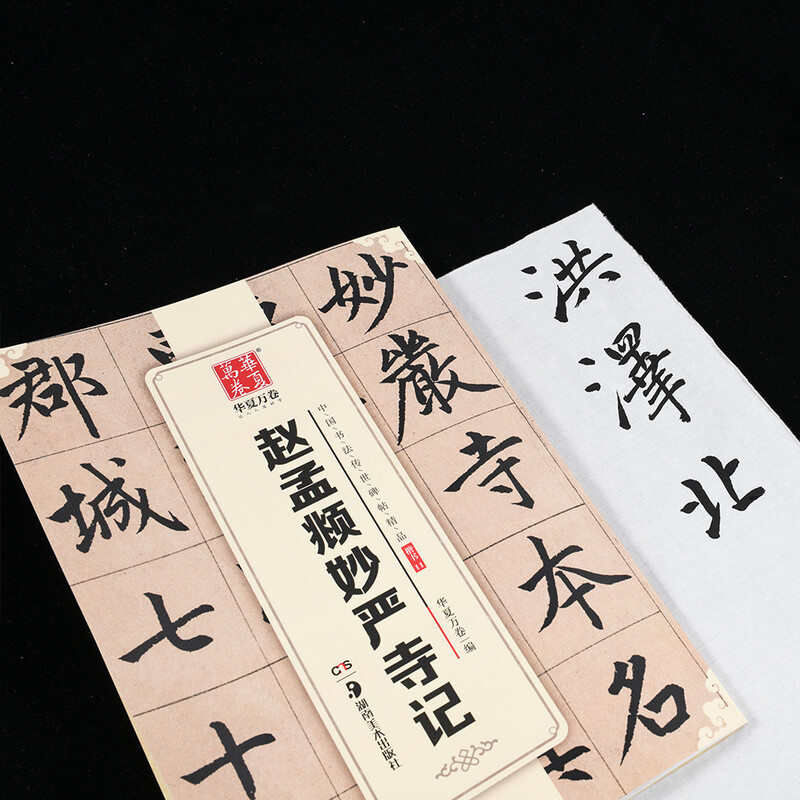 妙嚴寺本名
郡城七十
華夏
萬卷
华夏万卷
中国书法传世碑帖精品
楷书 11
赵孟頫妙严寺记
华夏万卷 编
CTS
湖南美术出版社
洪澤北